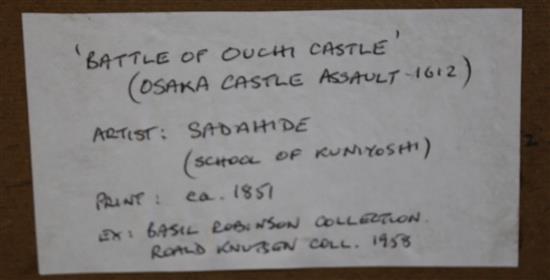 'BATTLE OF OUCHI CASTLE'
(OSAKA CASTLE ASSAULT - 1612)
ARTIST: SADAHIDE
(SCHOOL OF KUNIYOSHI)
PRINT: ca. 1851
EX: BASIL ROBINSON COLLECTION.
ROALD KNUTSEN COLL. 1958
2